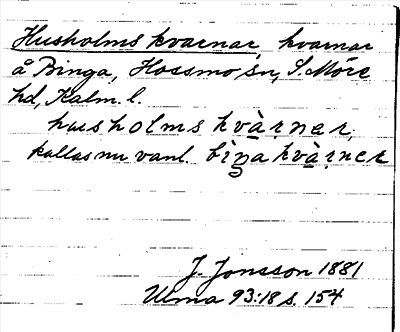 Husholms kvarnar, kvarnar
å Binga, Hossmo sn, S. Möre
hd, Kalm. l.
husholms kvàrnar,
kallas nu vanl. bìŋa kvàrner
J. Jonsson 1881
Ulma 93:18 s. 154